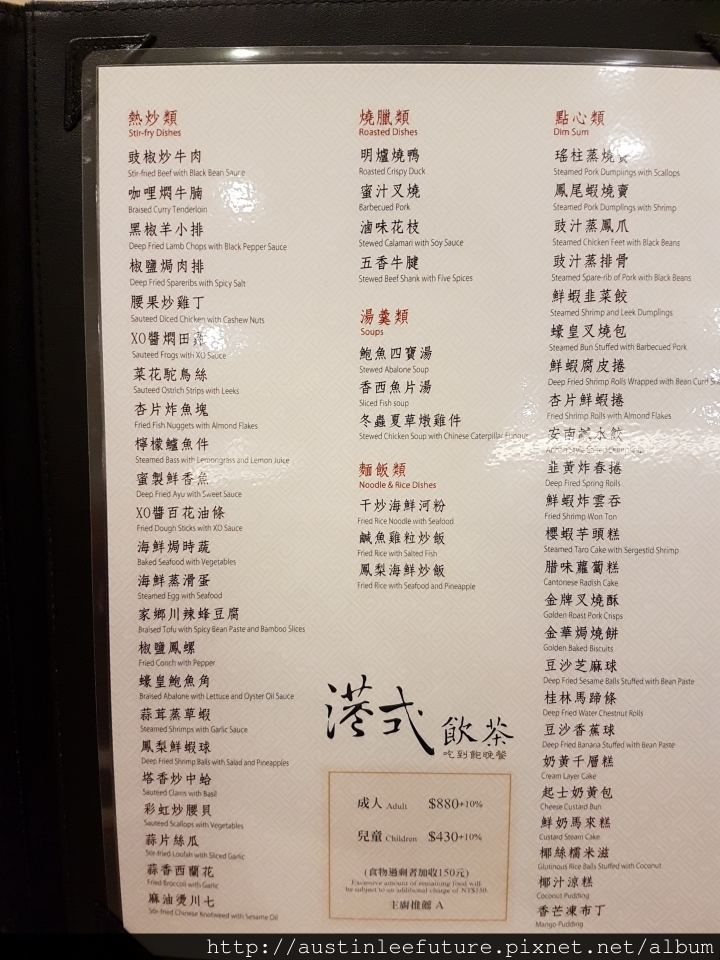 熱炒類
Stir-fry Dishes
豉椒炒牛肉
Stir-fried Beef with Black Bean Sauce
咖哩燜牛腩
Braised Curry Tenderloin
黑椒羊小排
Deep Fried Lamb Chops with Black Pepper Sauce
椒鹽焗肉排
Deep Fried Spareribs with Spicy Salt
腰果炒雞丁
Sauteed Diced Chicken with Cashew Nuts
XO醬燜田
Sauteed Frogs with XO Sauce
菜花駝鳥絲
Sauteed Ostrich Strips with Leeks
杏片炸魚塊
Fried Fish Nuggets with Almond Flakes
檸檬鱸魚件
Steamed Bass with Lemongrass and Lemon Juice
蜜製鮮香魚
Deep Fried Ayu with Sweet Sauce
XO醬百花油條
Fried Dough Sticks with XO Sauce
海鮮焗時蔬
Baked Seafood with Vegetables
海鮮蒸滑蛋
Steamed Egg with Seafood
家鄉川辣蜂豆腐
Braised Tofu with Spicy Bean Paste and Bamboo Slices
椒鹽鳳螺
Fried Conch with Pepper
蠔皇鮑魚角
Braised Abalone with Lettuce and Oyster Oil Sauce
蒜茸蒸草蝦
Steamed Shrimps with Garlic Sauce
鳳梨鮮蝦球
Deep Fried Shrimp Balls with Salad and Pineapples
塔香炒中蛤
Sauteed Clams with Basil
彩虹炒腰貝
Sauteed Scallops with Vegetables
蒜片絲瓜
Stir-fried Loofah with Sliced Garlic
蒜香西蘭花
Fried Broccoli with Garlic
麻油燙川七
Stir-fried Chinese Knotweed with Sesame Oil
燒臘類
Roasted Dishes
明爐燒鴨
Roasted Crispy Duck
蜜汁叉燒
Barbecued Pork
滷味花枝
Stewed Calamari with Soy Sauce
五香牛腱
Stewed Beef Shank with Five Spices
湯羹類
Soups
鮑魚四寶湯
Stewed Abalone Soup
香西魚片湯
Sliced Fish soup
冬蟲夏草燉雞件
Stewed Chicken Soup with Chinese Caterpillar Fungus
麵飯類
Noodle & Rice Dishes
干炒海鮮河粉
Fried Rice Noodle with Seafood
鹹魚雞粒炒飯
Fried Rice with Salted Fish
鳳梨海鮮炒飯
Fried Rice with Seafood and Pineapple
點心類
Dim Sum
瑤柱蒸燒賣
Steamed Pork Dumplings with Scallops
鳳尾蝦燒賣
Steamed Pork Dumplings with Shrimp
豉汁蒸鳳爪
Steamed Chicken Feet with Black Beans
豉汁蒸排骨
Steamed Spare-rib of Pork with Black Beans
鮮蝦韭菜餃
Steamed Shrimp and Leek Dumplings
蠔皇叉燒包
Steamed Bun Stuffed with Barbecued Pork
鮮蝦腐皮捲
Deep Fried Shrimp Rolls Wrapped with Bean Curd
杏片鮮蝦捲
Fried Shrimp Rolls with Almond Flakes
安南鹹水餃
韭黃炸春捲
Deep Fired Spring Rolls
鮮蝦炸雲吞
Fried Shrimp Won Ton
櫻蝦芋頭糕
Steamed Taro Cake with Sergestid Shrimp
腊味蘿蔔糕
Cantonese Radish Cake
金牌叉燒酥
Golden Roast Pork Crisps
金華焗燒餅
Golden Baked Biscuits
豆沙芝麻球
Deep Fried Sesame Balls Stuffed with Bean Paste
桂林馬蹄條
Deep Fried Water Chestnut Rolls
豆沙香蕉球
Deep Fried Banana Stuffed with Bean Paste
奶黃千層糕
Cream Layer Cake
起士奶黃包
Cheese Custard Bun
鮮奶馬來糕
Custard Steam Cake
椰絲糯米滋
Glutinous Rice Balls Stuffed with Coconut
椰汁涼糕
Coconut Pudding
香芒凍布丁
Mango Pudding
港式飲茶
吃到飽晚餐
成人 Adult $880+10%
兒童 Children $430+10%
(食物過剩者加收150元)
Excessive amount of remaining food will
be subject to an additional charge of NT$150.
主廚推薦 A
http://austinleefuture.pixnet.net/album